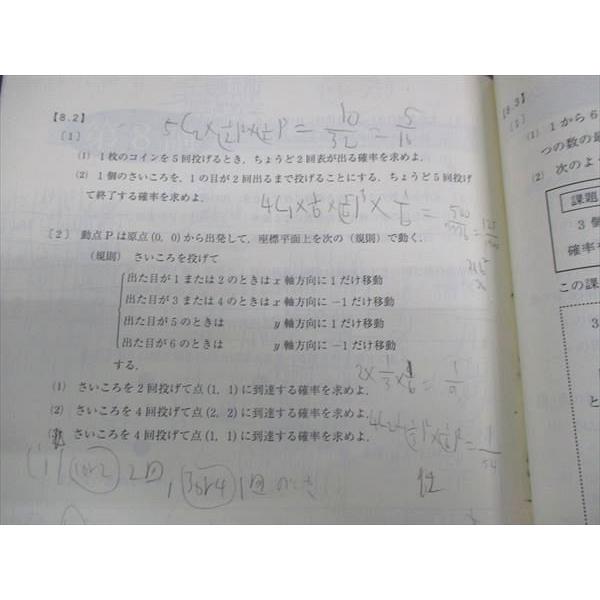 【8.2】
〔1〕
5C2×(1/2)²×(1/2)³ = 10/32 = 5/16
(1) 1枚のコインを5回投げるとき，ちょうど2回表が出る確率を求めよ．
(2) 1個のさいころを，1の目が2回出るまで投げることにする．ちょうど5回投げ
て終了する確率を求めよ．
4C1×1/6×(5/6)³×1/6 =
〔2〕 動点Pは原点(0, 0)から出発して，座標平面上を次の（規則）で動く．
（規則） さいころを投げて
出た目が1または2のときは x 軸方向に1だけ移動
出た目が3または4のときは x 軸方向に −1だけ移動
出た目が5のときは y 軸方向に1だけ移動
出た目が6のときは y 軸方向に −1だけ移動
する．
2×1/3×1/6 = 1/9
(1) さいころを2回投げて点(1, 1)に到達する確率を求めよ．
(2) さいころを4回投げて点(2, 2)に到達する確率を求めよ．
4C2(1/3)²×(1/6)² = 1/54
さいころを4回投げて点(1, 1)に到達する確率を求めよ．
(i) 1or2 2回, 3or4 1回
12
【8.3】
(1) 1から6
つの数の最
(2) 次のよう
課題
3個
確率を
この課
3